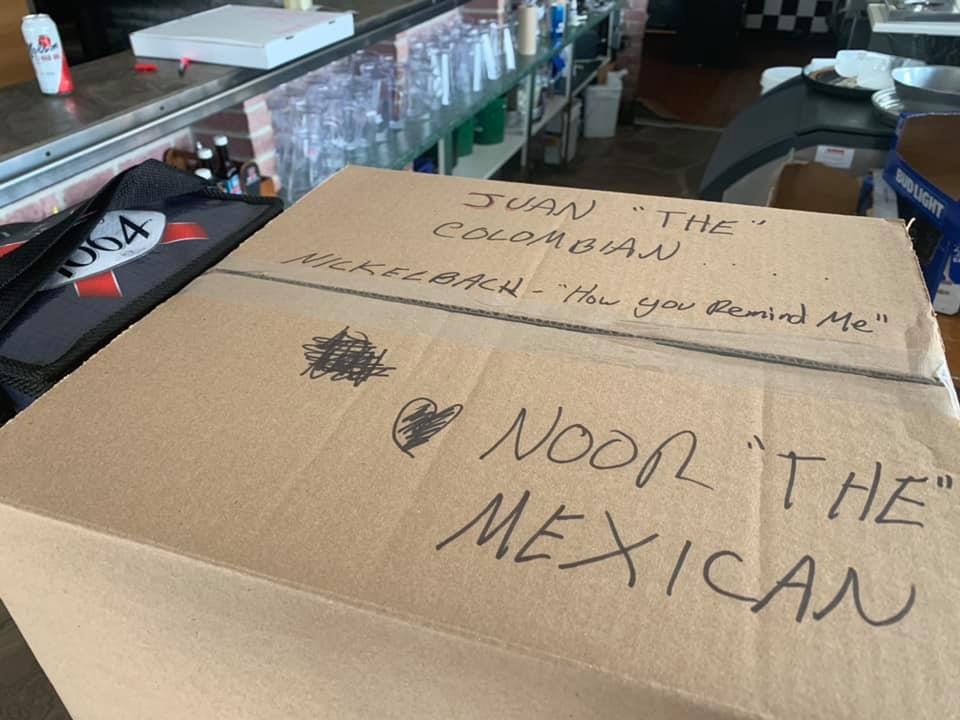 JUAN "THE"
COLOMBIAN ....
NICKELBACH - "How you Remind Me"
NOOR "THE"
MEXICAN
1064
BUD LIGHT